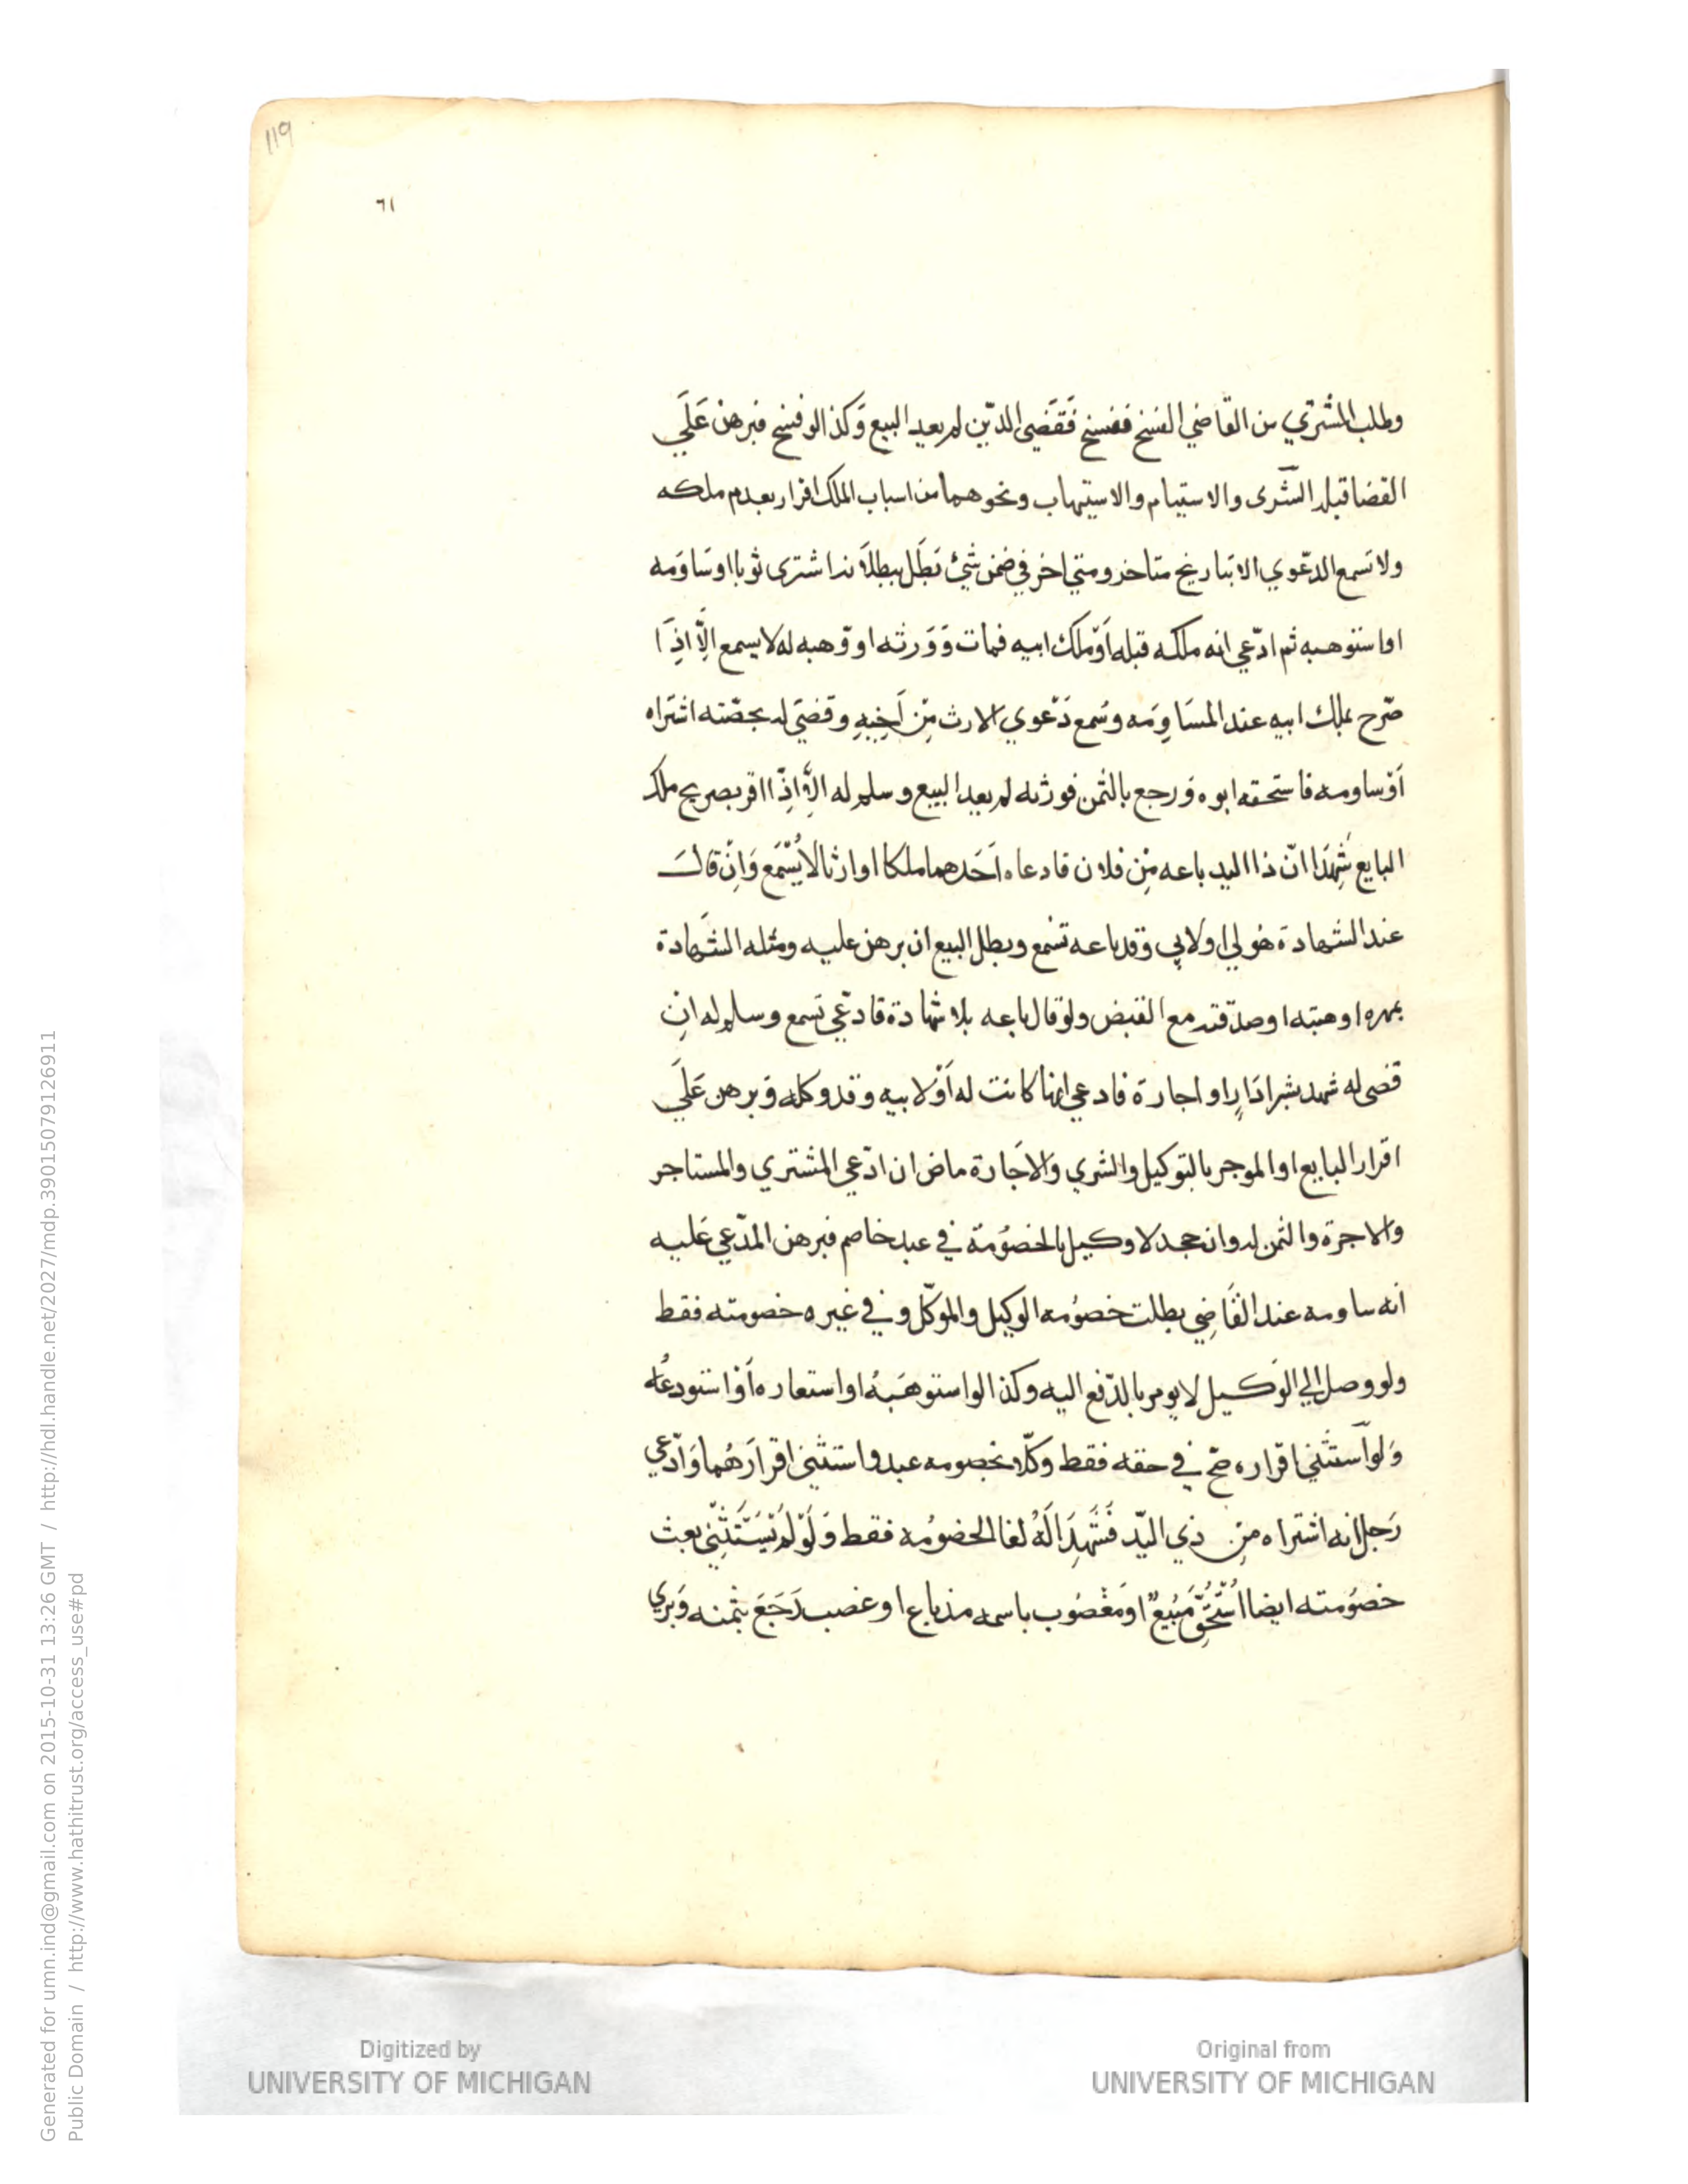 119
٦١
وطلب المشتري من القاضي الفسخ ففسخ فَقَضى الدّين لم يعد البيع وَكذا لو فسخ فبرهن عَلَي
القضا قبل الشّرى والاستيام والاستيهاب ونحوهما من اسباب الملك اقرار بعدم ملكه
ولا تسمع الدعّوي الا بتاريخ متاخر ومتي اخر في ضمن شئ بَطَل ببطلانه اشترى ثوبا اوسَاوَمه
اواستوهبه ثم ادّعي انه ملكه قبله اَوْملك ابيه فمات وَوَرثه او وّهبه له لا يسمع الِّا اذِ ا
صّرح بملك ابيه عند المسَاوِمَه وسُمع دَعوي الارث مِّن اَخِيهِ وقضيَ له بحصّته اشتراه
اَوْساومه فاستحقه ابوه وَرجع بالثمن فورثه لم يعد البيع وسلم له الِّا اذِّا اقر بصريح ملك
البايع شَهِدَا انّ ذا اليد باعه مِّن فلان فادعاه اَحَدهما ملكا او ارثا لا يُسْمَع وَانِّ قالَ
عند الشهادة هُو لي اولابي وَقد باعه تسْمع وبطل البيع ان برهن عليه ومثله الشهادة
بمهره اوهبته اوصدقته مع القبض ولو قال باعه بلا شهادة فادعّي تسمع وسلم له انِ
قضى له شهد بشرا دَارٍ او اجارة فادعي انها كانت له اَوْلابيه وقد وكله وَبرهن عَلَي
اقرار البايع او الموجر بالتوكيل والشري والاجَارة ماض ان ادّعي المشتري والمستاجر
والاجرة والثمن له وان جحد لا وكيل بالخصُومة في عبد خاصم فبرهن المدّعي عَليه
انه ساومه عند القَاضِي بطلت خصُومه الوكيل والموكّل وفي غيره خصومته فقط
ولو وصل الي الوَكيل لا يومر بالدّفع اليه وكذا لو استوهَبهُ او استعاره اَوْ استودعُه
وَلو استثني اقراره صّح في حقه فقط وكّلا بخصومه عبد واستثنى اقرارَهُما وَادّعي
رَجل انه اشتراه مِن ذي اليّد فَشَهِدَا لَهُ لغا الخصُومه فقط وَلَوْ لَمْ يَسْتَثْنِ بعث
خصُومته ايضا اسْتُحِقّ مَبِيعٌ اومَغصُوب باسمه مذ باع او غصب رَجَعَ بثمنه وَبَري
Generated for umn.ind@gmail.com on 2015-10-31 13:26 GMT / http://hdl.handle.net/2027/mdp.39015079126911
Public Domain / http://www.hathitrust.org/access_use#pd
Digitized by
UNIVERSITY OF MICHIGAN
Original from
UNIVERSITY OF MICHIGAN